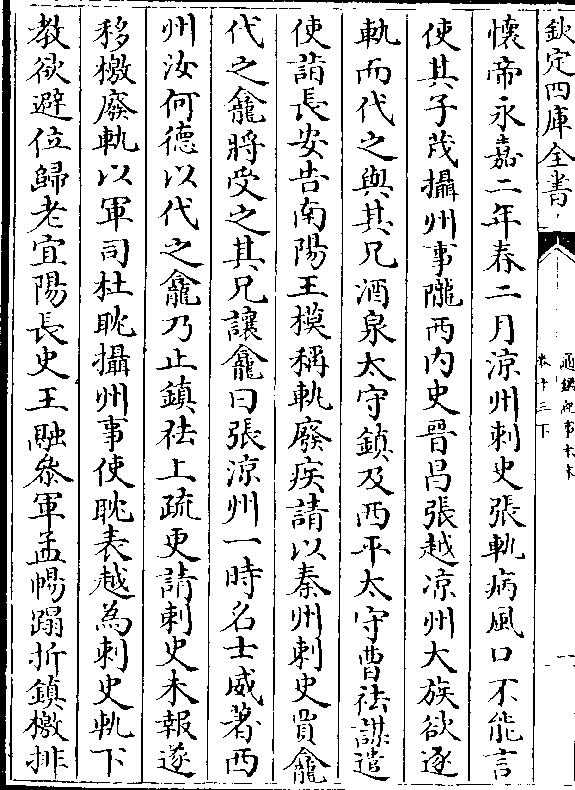 欽定四庫全書
通鑑紀事本末
卷十三下
懷帝永嘉二年春二月涼州刺史張軌病風口不能言
使其子茂攝州事隴西内史晉昌張越涼州大族欲逐
軌而代之與其兄酒泉太守鎮及西平太守曹祛謀遣
使詣長安告南陽王模稱軌廢疾請以秦州刺史賈龕
代之龕將受之其兄讓龕曰張涼州一時名士威著西
州汝何德以代之龕乃止鎮祛上疏更請刺史未報遂
移檄廢軌以軍司杜耽攝州事使耽表越為刺史軌下
教欲避位歸老宜陽長史王融參軍孟暢蹋折鎮檄排